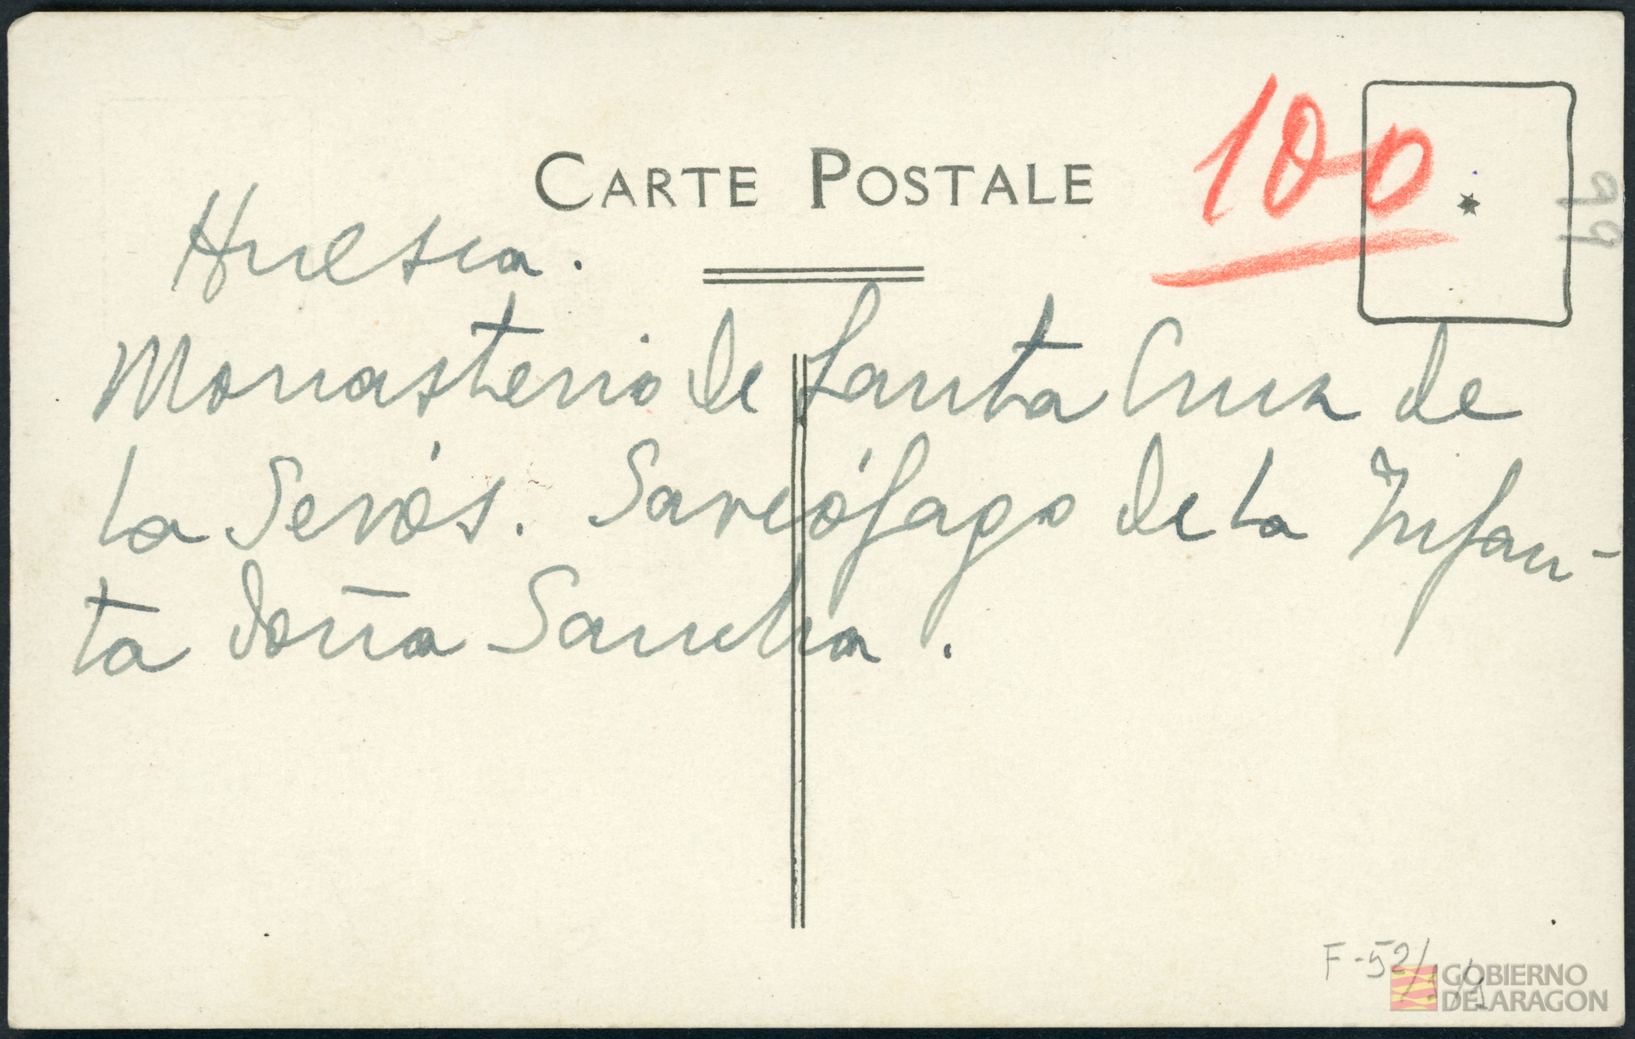 CARTE POSTALE
100
99
Huesca.
Monasterio de Santa Cruz de
la Serós. Sarcófago de la Infan-
ta doña Sancha.
F-52/
GOBIERNO
DE ARAGON